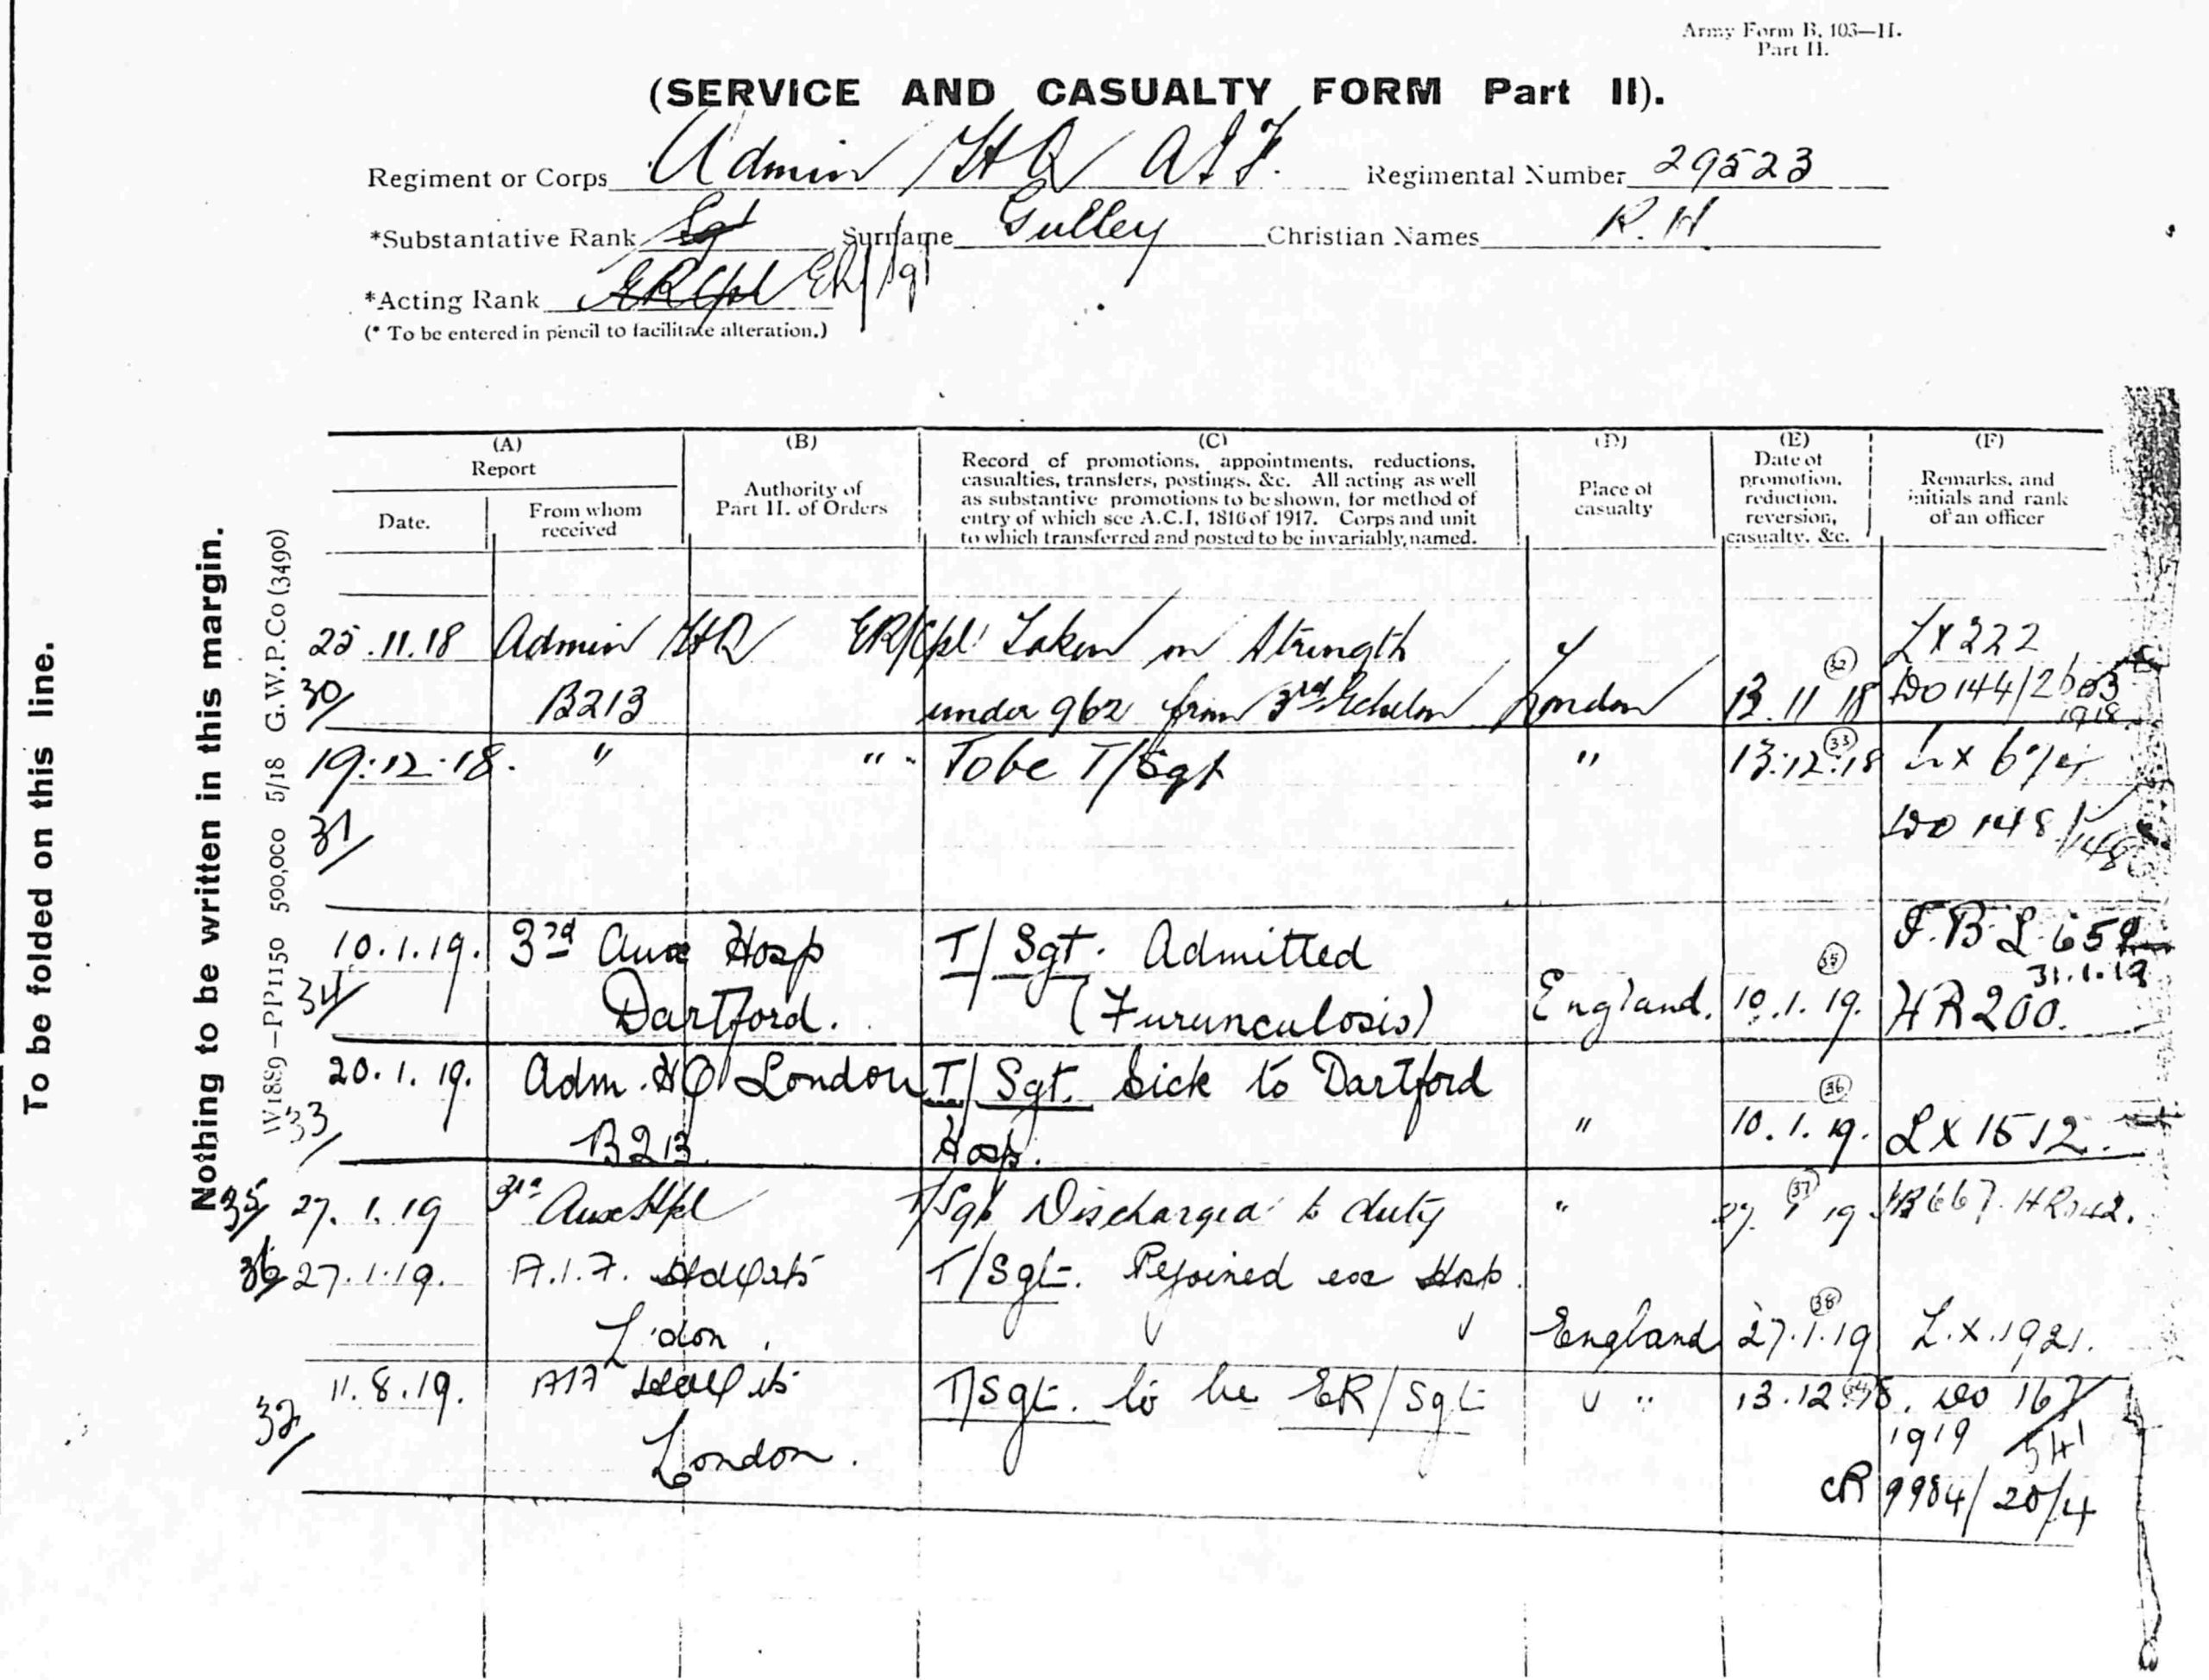 Army Form B. 103—II.
Part II.
(SERVICE AND CASUALTY FORM Part II).
Regiment or Corps Admin HQ AIF. Regimental Number 29523
*Substantative Rank Sgt Surname Gulley Christian Names R. H.
*Acting Rank ER Cpl ER/Sgt
(* To be entered in pencil to facilitate alteration.)
To be folded on this line.
Nothing to be written in this margin.
W1889—PP1150 500,000 5/18 G.W.P.Co (3490)
(A) (B) (C) (D) (E) (F)
Report
Date.
From whom
received
Authority of
Part II. of Orders
Record of promotions, appointments, reductions,
casualties, transfers, postings, &c. All acting as well
as substantive promotions to be shown, for method of
entry of which see A.C.I. 1816 of 1917. Corps and unit
to which transferred and posted to be invariably named.
Place of
casualty
Date of
promotion,
reduction,
reversion,
casualty, &c.
Remarks, and
initials and rank
of an officer
25.11.18 Admin HQ ER/Cpl Taken on Strength LX 222
30/ B213 under 962 from 3rd Echelon London 13.11.18 (32) DO 144/2603
1918
19.12.18. " " " To be T/Sgt " 13.12.18 (33)
31/ DO 148
10.1.19. 3rd Aux Hosp T/Sgt. Admitted F.B.L. 659
31.1.19
34/ Dartford. (Furunculosis) England. 10.1.19. HR 200.
20.1.19. Adm. HQ London T/Sgt. Sick to Dartford (36)
33/ B213 Hosp. " 10.1.19. LX 1512.
35/ 27.1.19 3rd Aux Hpl T/Sgt Discharged to duty " 27.1.19 (37)
36/ 27.1.19. A.I.F. Hdqts T/Sgt. Rejoined ex Hosp.
London. England 27.1.19 (38) L.X. 1921.
11.8.19. AIF Hdqts T/Sgt. to be ER/Sgt " 13.12.18. DO 167
32/ London. 1919 341
CR 9984/20/4